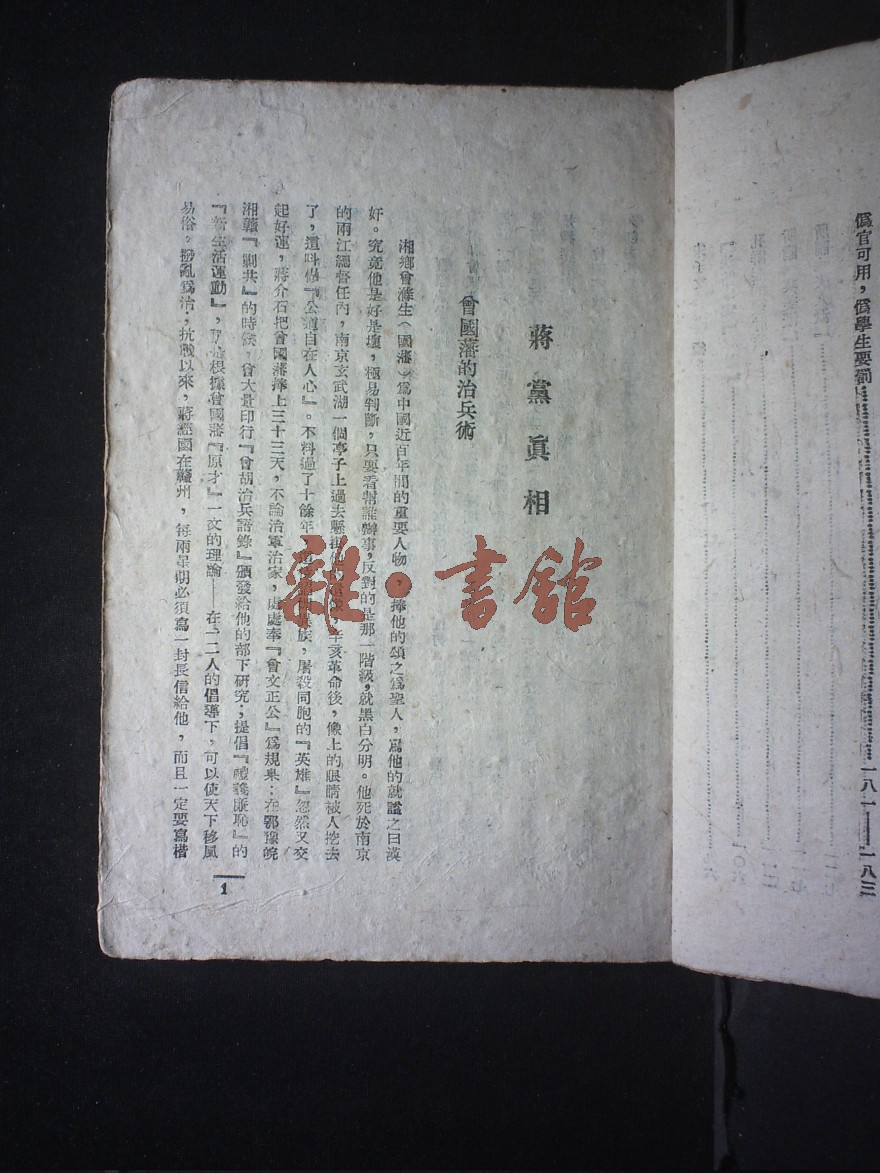 爲官可用，爲學生要罰……一八一——一八三
蔣黨眞相
曾國藩的治兵術
湘鄉曾滌生（國藩）爲中國近百年間的重要人物，捧他的頌之爲聖人，罵他的就謚之曰漢
奸。究竟他是好是壞，極易判斷，只要看幫誰辦事，反對的是那一階級，就黑白分明。他死於南京
的兩江總督任內，南京玄武湖一個亭子上過去懸掛他的 辛亥革命後，像上的眼睛被人挖去
了，這叫做『公道自在人心』。不料過了十餘年， 族，屠殺同胞的『英雄』忽然又交
起好運，蔣介石把曾國藩捧上三十三天，不論治軍治家，處處奉『曾文正公』爲規臬：在鄂豫皖
湘贛『剿共』的時候，曾大量印行『曾胡治兵語錄』頒發給他的部下研究；提倡『禮義廉恥』的
『新生活運動』， 根據曾國藩『原才』一文的理論——在一二人的倡導下，可以使天下移風
易俗。撥亂爲治，抗戰以來，蔣經國在贛州，每兩星期必須寫一封長信給他，而且一定要寫楷
1
雜·書館